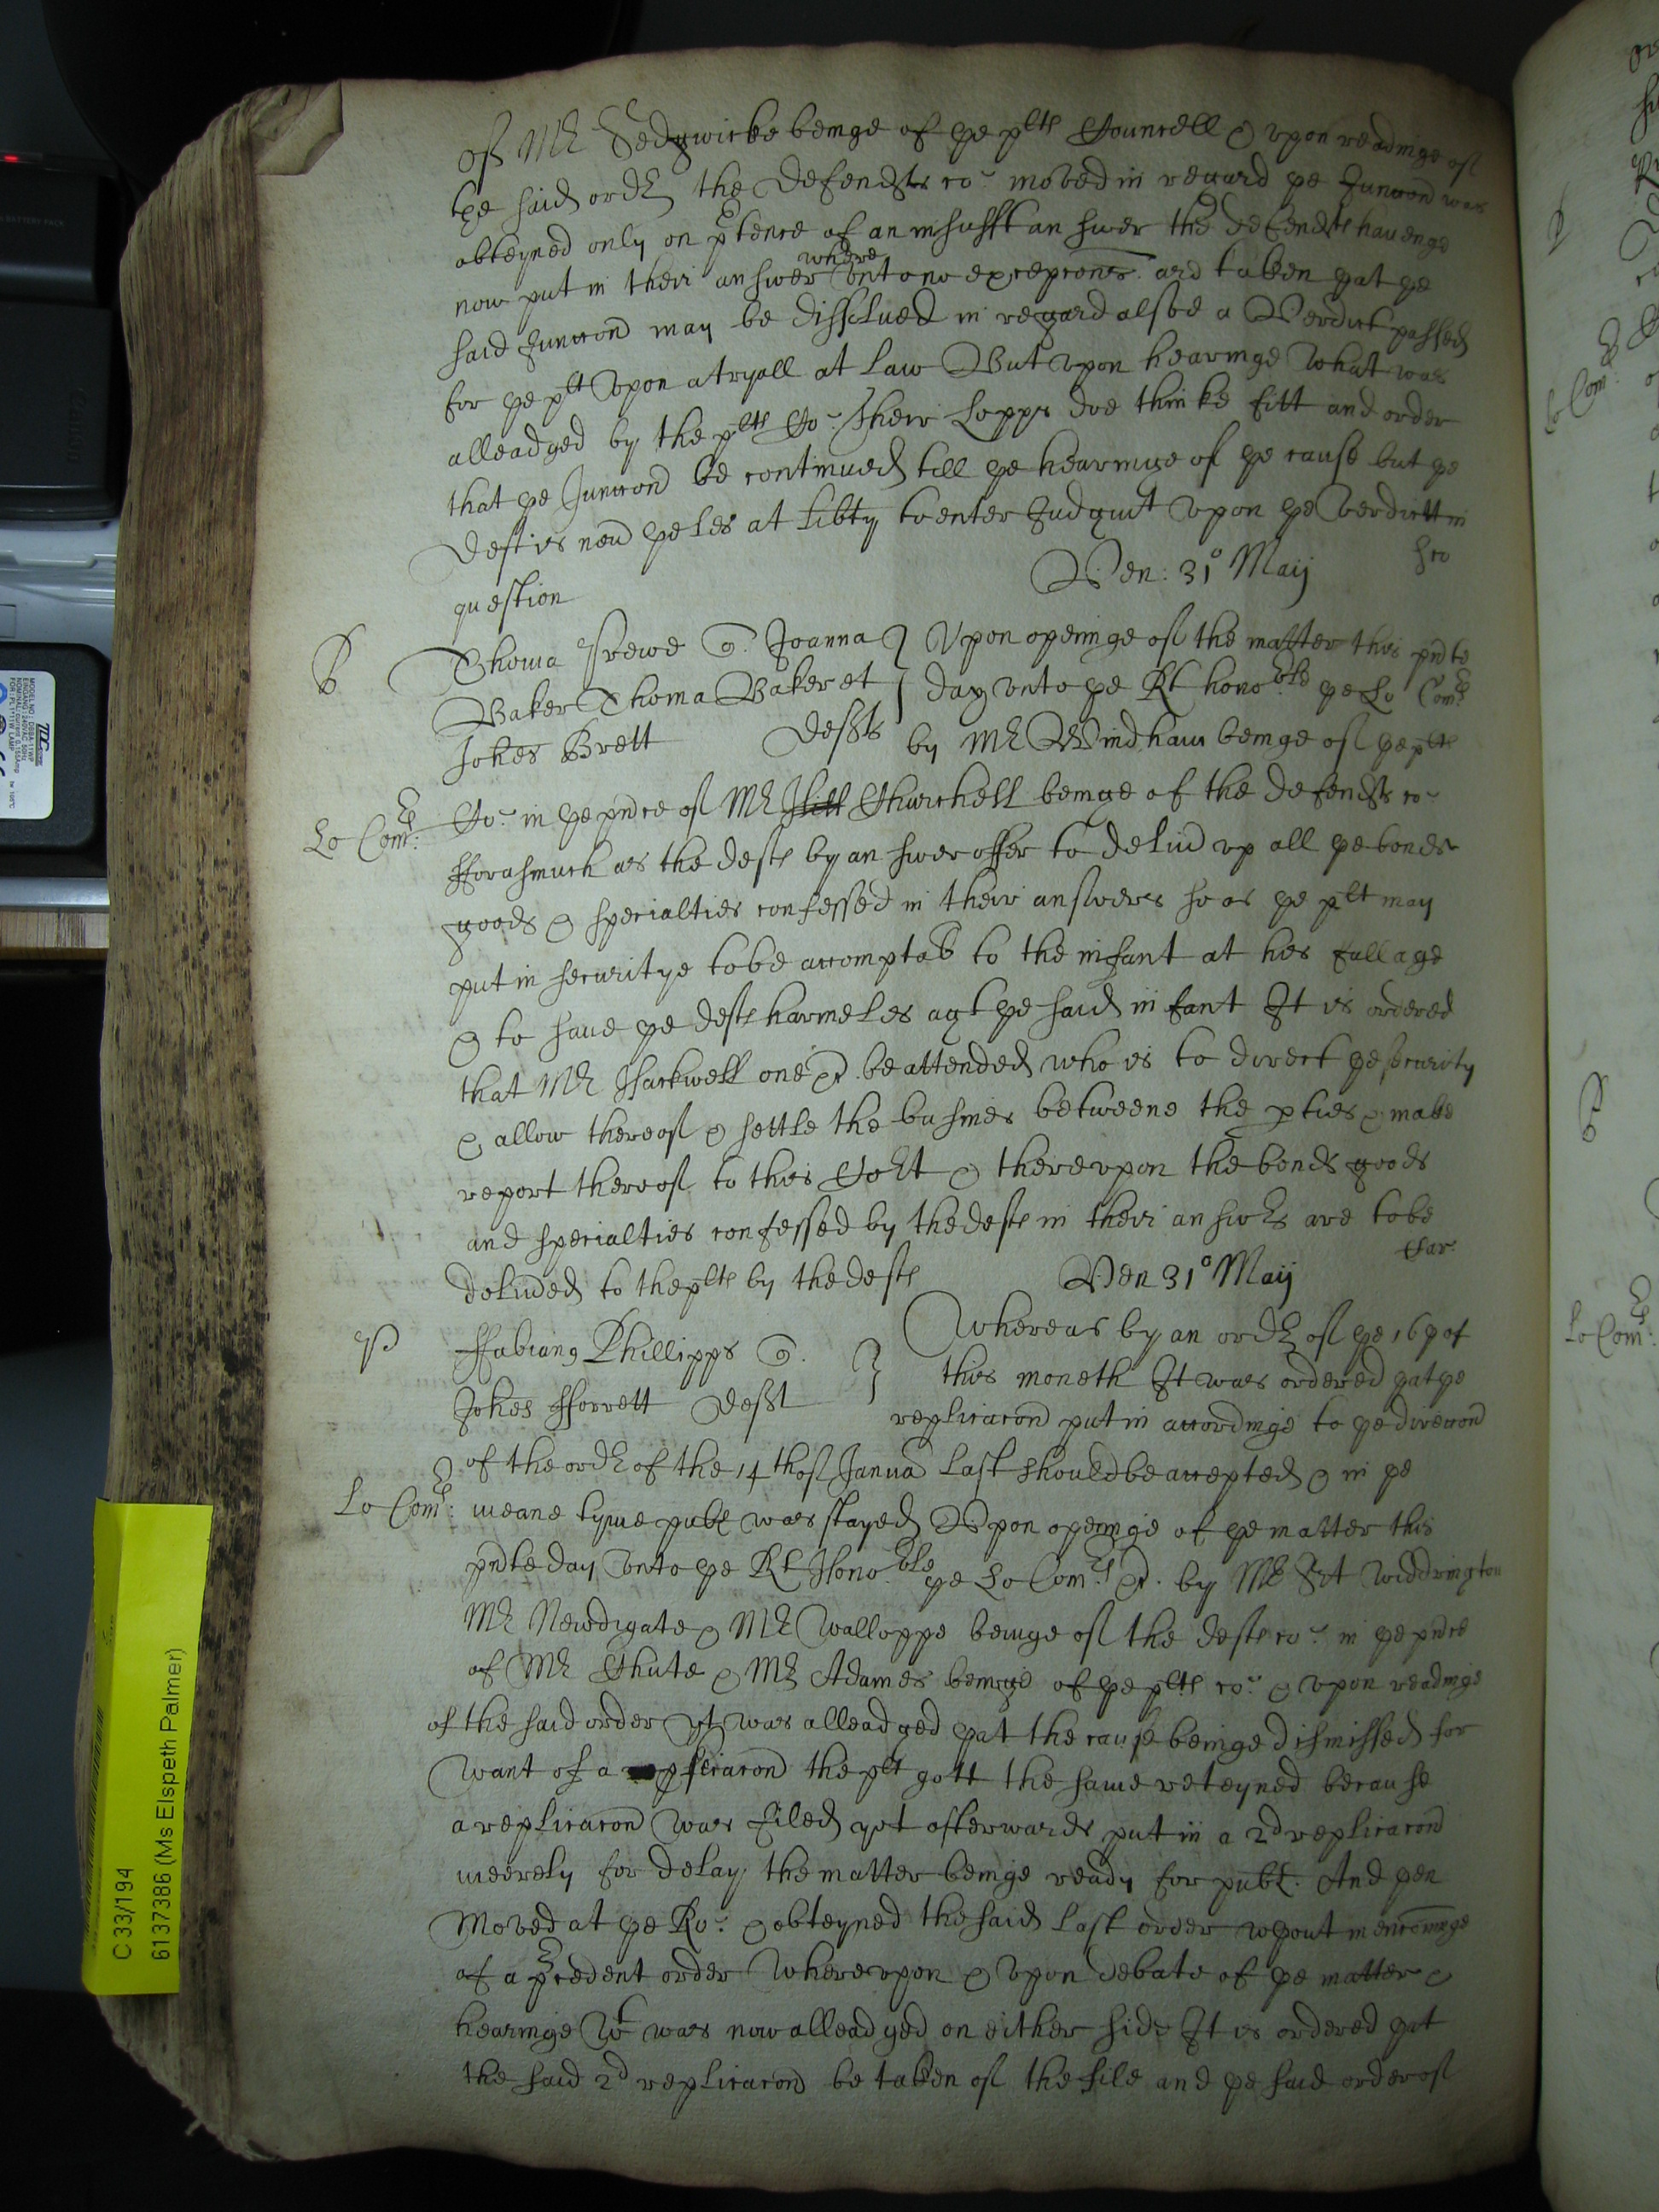 of Mr Sedgwicke beinge of ye plts Councell & vpon readinge of
the said order the Defendts co: moved in regard ye Iunccon was
obteyned only on ptence of an insufft answer the defendts havinge
now put in their answer where vnto no excepcons are taken yat ye
said Iunccon may be dissolued in regard alsoe a Verdict passed
for ye plt vpon a tryall at law But vpon hearinge what was
alleadged by the plts Co: their Lopps doe thinke fitt and order
that ye Iunccon be continued till ye hearinge of ye cause but ye
Deft is neu yeles at libty to enter Iudgmt vpon ye verdict in
question
Ven: 31o Maij
B
Thoma Trewe Q. Joanna
Baker Thoma Baker et
Johes Brett Defts
Vpon openinge of the matter this pnte
day vnto ye Rt honoble ye Lo Comrs
by Mr Windham beinge of ye plts
Lo Comrs:
Co: in ye pnce of Mr Hill Churchell beinge of the defendts co:
fforasmuch as the defts by answer offer to deliu vp all ye bonds
goods & specialties confessed in their answers so as ye plt may
put in securitye to be accomptab to the infant at his full age
& to saue ye defts harmeles agt ye said infant It is ordered
that Mr Hackwell one &c. be attended who is to direct ye security
& allow thereof & settle the busines betweene the pties & make
report thereof to this Cort & therevpon the bonds goods
and specialties confessed by the defts in their answrs are to be
deliuded to the plts by the defts
Ven 31o Maij
Car
P
ffabianus Phillipps Q.
Johes fforrett Deft
Whereas by an order of ye 16 of
this moneth It was ordered yat ye
replicacon put in accordinge to ye direccon
of the order of the 14th of Janua last should be accepted & in ye
Lo Comrs:
meane tyme publ was stayed Vpon openinge of ye matter this
pnte day vnto ye Rt Honoble ye Lo Comrs &c. by Mr Srt Widdrington
Mr Newdigate & Mr Walloppe beinge of the defts co: in ye pnce
of Mr Chute & Mr Adames beinge of ye plts co: & vpon readinge
of the said order yt was alleadged yat the cause beinge dismissed for
want of a replicacon the plt gott the same reteyned because
a replicacon was filed yet afterwards put in a 2d replicacon
meerely for delay the matter beinge ready for publ. And yen
moved at ye Ro: & obteyned the said last order wthout mencoinge
of a pcedent order Wherevpon & vpon debate of ye matter &
hearinge wt was now alleadged on either side It is ordered yat
the said 2d replicacon be taken of the file and ye said order of
C 33/194
6137386 (Ms Elspeth Palmer)